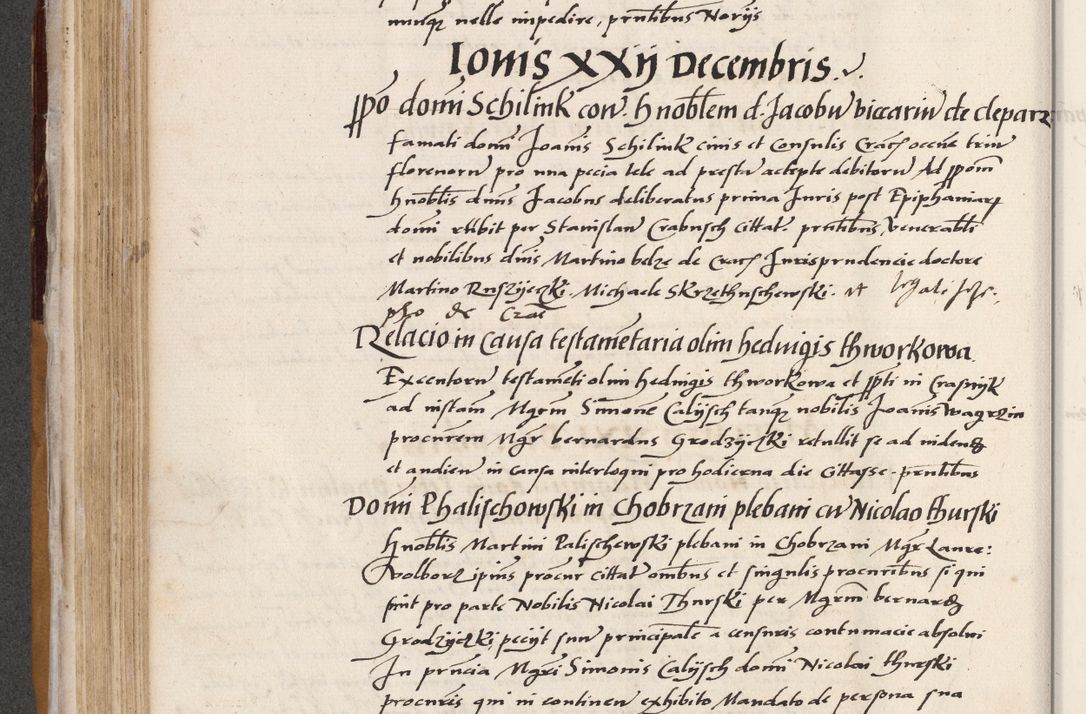 nunqz nelle impedire, prntibus Norijs
Iouis XXij Decembris
ppo domi Schilink con. hnoblem d. Jacobu biccariu de clepars
famati domi Joanis Schilink ciuis et Consulis Crac occne triu
florenoru pro una pecia tele ad presta accepte debitoru Ad ppom
hnoblis dnus Jacobus deliberatus prima Juris post Epiphaniaru
domi rtibit per Stanislau Crabusch cittat. prntibus, venerabli
et nobilibus dnis Martino belze de Crac Jurisprudencie doctore
Martino Ruszijeczki. Michaele Skrzethuschewski. et
pbo de Crac
Relacio in causa testametaria olim heduigis thworkowa
Executoru testameti olim heduigis thworkowa et ppti in Crasnijk
ad instam Mgrm Simone Calijsch tanqz nobilis Joanis Wagrzin
procurem Mgr bernardus Grodzijczki retullit se ad uidend
et audien in causa interloqui pro hodierna die cittasse. prntibus
Domi Phalischowski in Chobrzani plebani cu Nicolao thurski
hnoblis Martini Palischewski plebani in Chobrzani Mgr Laure:
Volborz ipius procur cittat omibus et singulis procuribus si qui
sint pro parte Nobilis Nicolai Thurski per Mgrm bernard
Grodzijczki, pecijt suu principale a censuris contumacie absolui
In prncia Mgri Simonis Calijsch domi Nicolai thurski
procuris qui in continen exhibito Mandato de persona sua